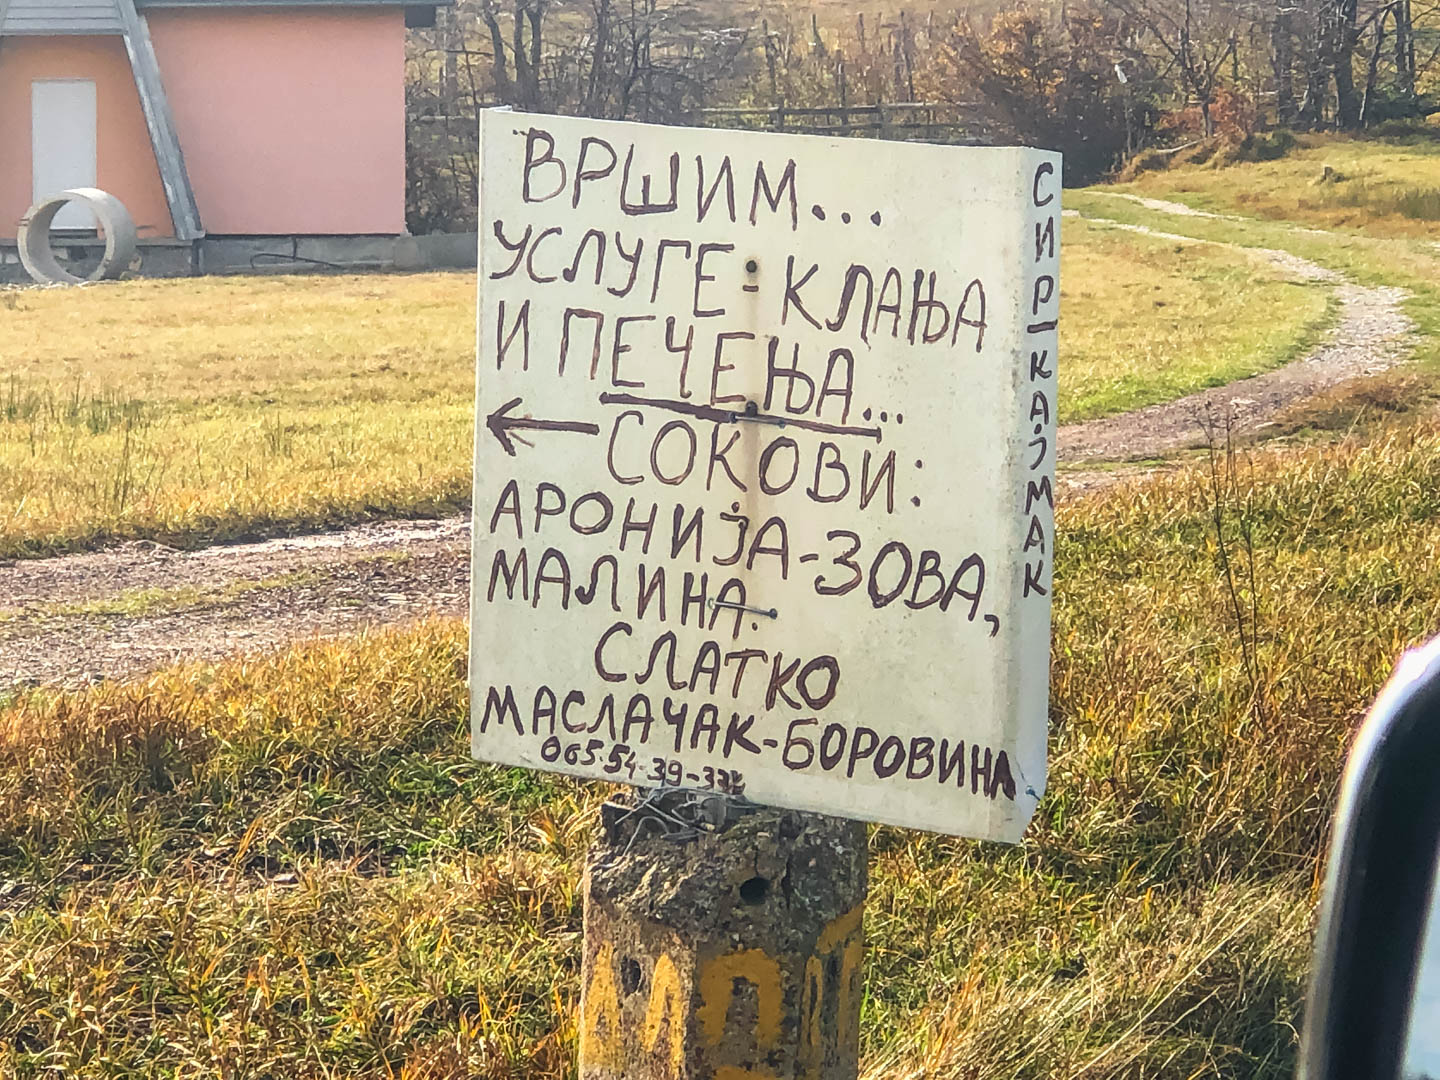 ВРШИМ...
УСЛУГЕ: КЛАЊА
И ПЕЧЕЊА...
← СОКОВИ:
АРОНИЈА-ЗОВА,
МАЛИНА.
СЛАТКО
МАСЛАЧАК-БОРОВИНА
065-54-39-
СИР-КАЈМАК